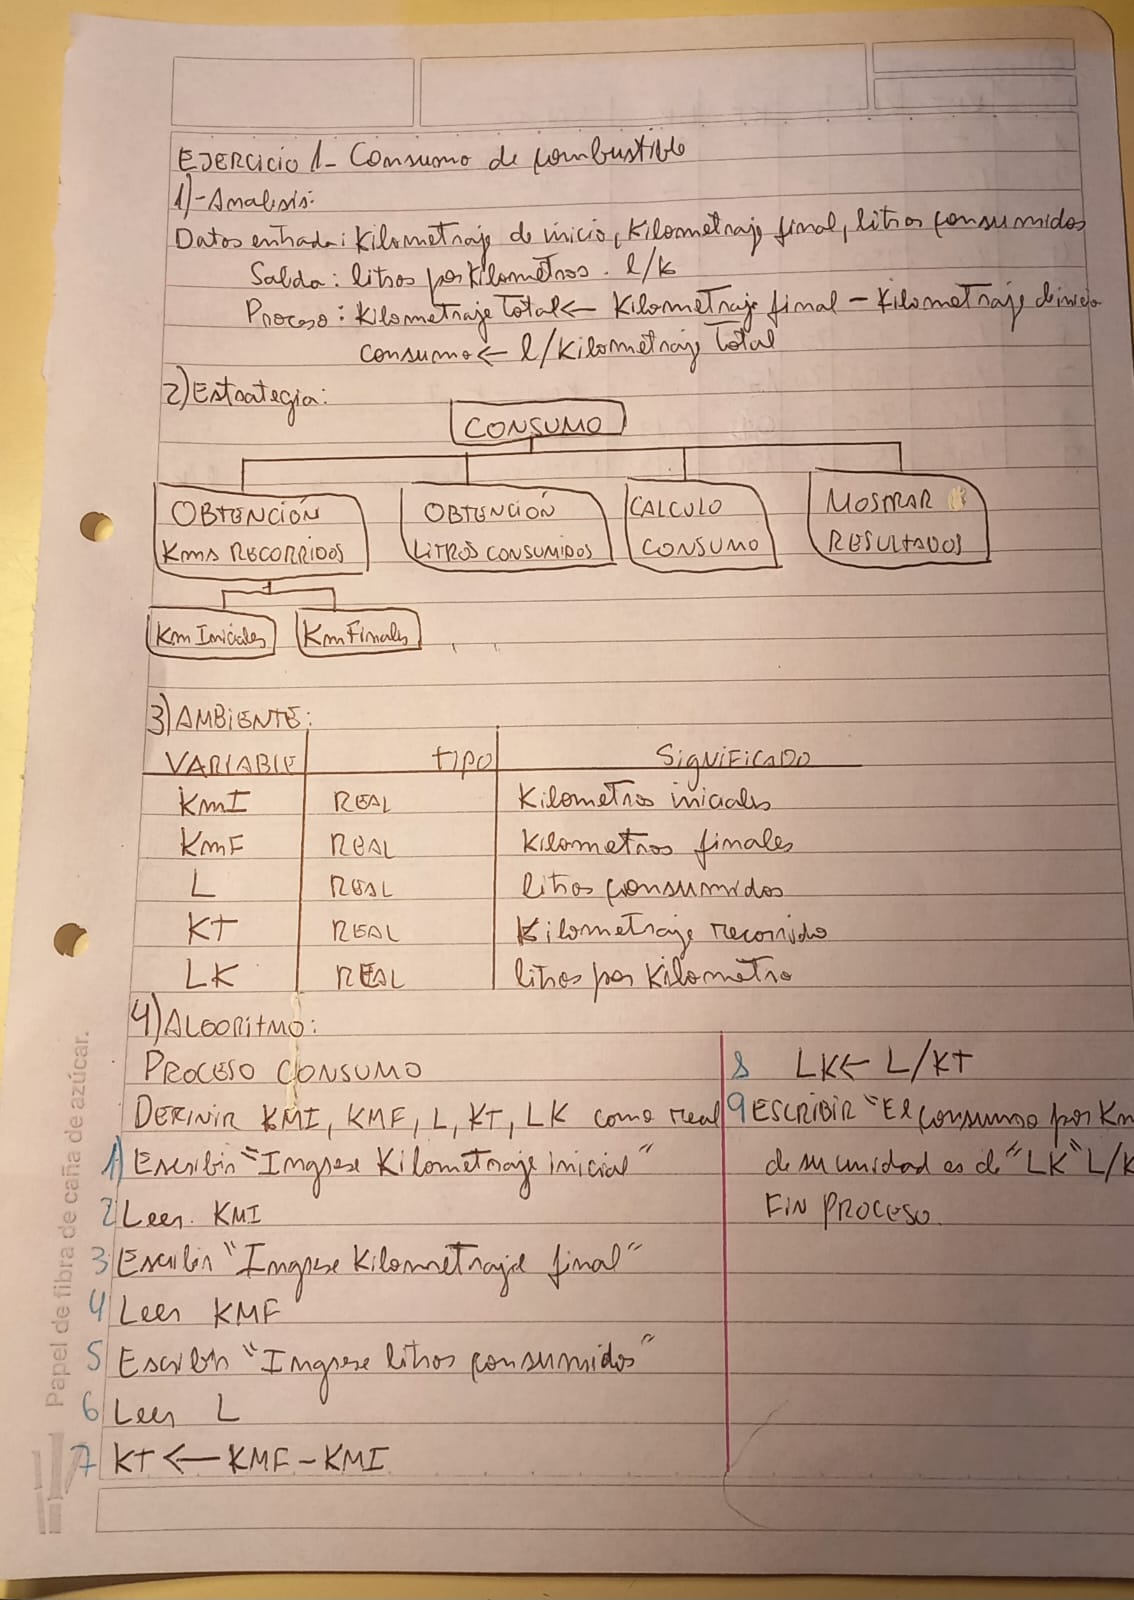 EJERCICIO 1- Consumo de combustible
1)-Analisis:
Datos entrada: Kilometraje de inicio, Kilometraje final, litros consumidos
Salida: litros por Kilometros. l/k
Proceso: Kilometraje Total ← Kilometraje final - Kilometraje de inicio
consumo ← l/Kilometraje Total
2) Estrategia:
CONSUMO
OBTENCIÓN
Kms RECORRIDOS
OBTENCIÓN
LITROS CONSUMIDOS
CALCULO
CONSUMO
MOSTRAR
RESULTADOS
Km Iniciales
Km Finales
3) AMBIENTE:
VARIABLE TIPO SIGNIFICADO
KmI REAL Kilometros iniciales
KmF REAL Kilometros finales
L REAL litros consumidos
KT REAL Kilometraje recorrido
LK REAL litros por Kilometro
4) ALGORITMO:
PROCESO CONSUMO
DEFINIR KMI, KMF, L, KT, LK como real
1) Escribir "Ingrese Kilometraje inicial"
2 Leer. KMI
3 Escribir "Ingrese Kilometraje final"
4 Leer KMF
5 Escribir "Ingrese litros consumidos"
6 Leer L
7 KT ← KMF - KMI
8 LK ← L/KT
9 ESCRIBIR "El consumo por Km
de su unidad es de "LK" L/K
FIN PROCESO.
Papel de fibra de caña de azúcar.